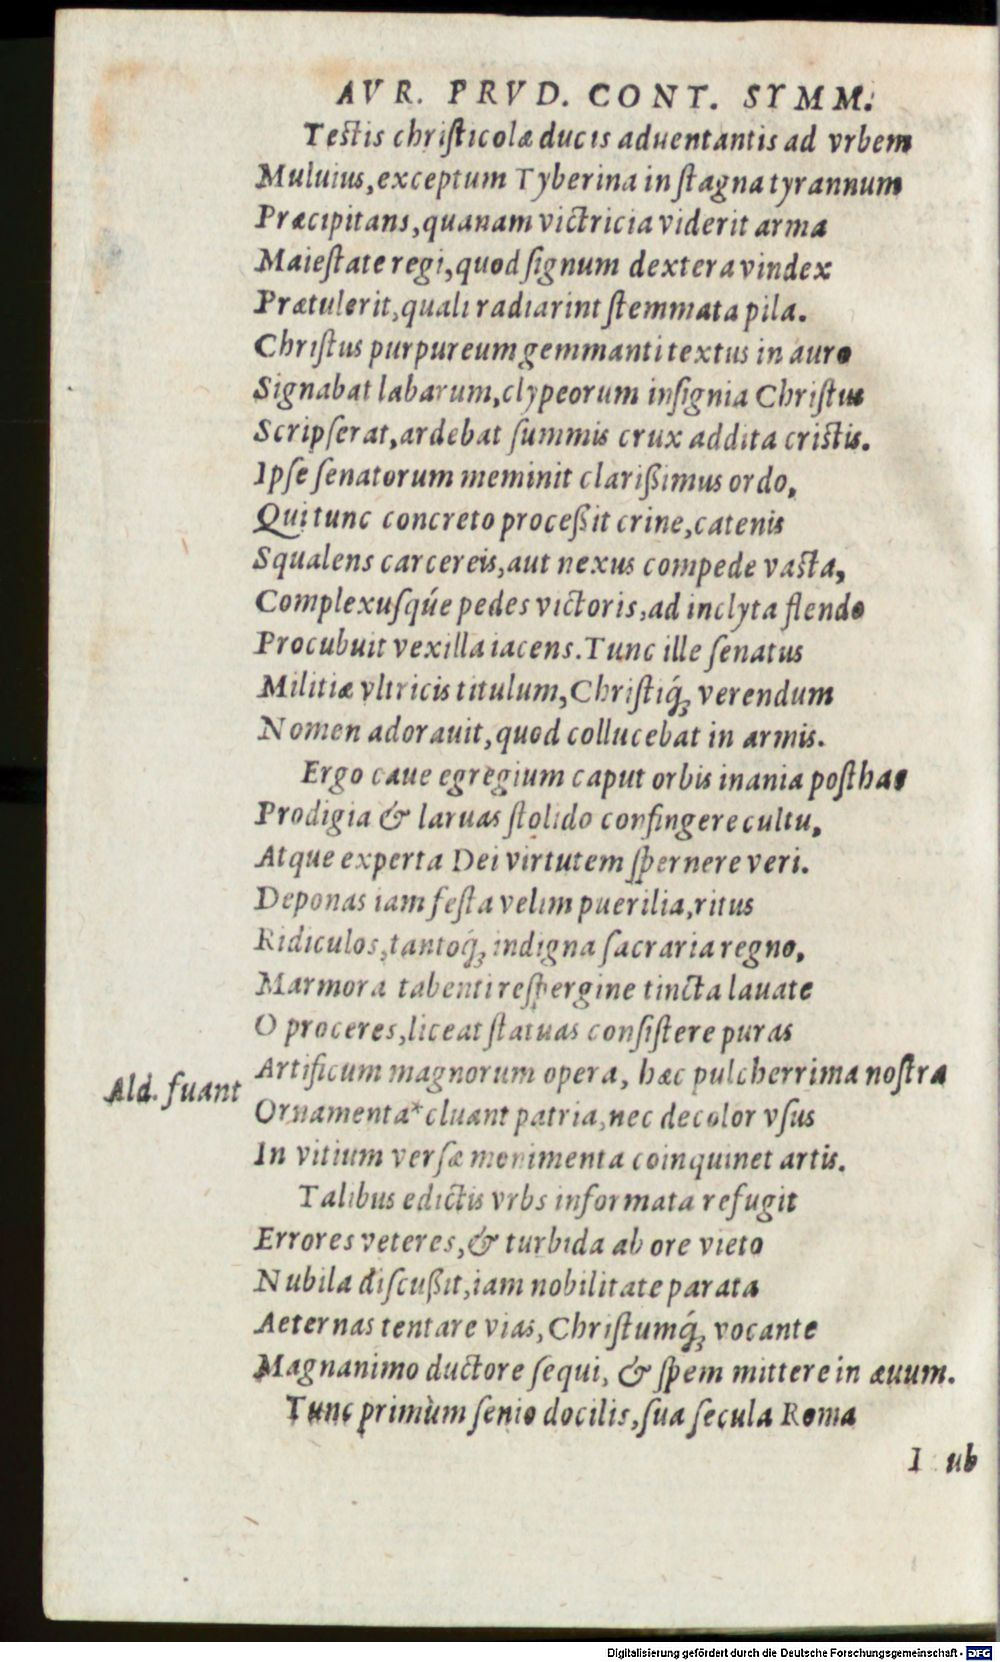 AVR. PRVD. CONT. SYMM.
Testis chriſticolæ ducis aduentantis ad vrbem
Muluius, exceptum Tyberina in ſtagna tyrannum
Præcipitans, quanam victricia viderit arma
Maieſtate regi, quod ſignum dextera vindex
Prætulerit, quali radiarint ſtemmata pila.
Chriſtus purpureum gemmanti textus in auro
Signabat labarum, clypeorum inſignia Chriſtus
Scripſerat, ardebat ſummis crux addita criſtis.
Ipſe ſenatorum meminit clarißimus ordo,
Qui tunc concreto proceßit crine, catenis
Squalens carcereis, aut nexus compede vaſta,
Complexuſqúe pedes victoris, ad inclyta flendo
Procubuit vexilla iacens. Tunc ille ſenatus
Militiæ vltricis titulum, Chriſtiq́; verendum
Nomen adorauit, quod collucebat in armis.
Ergo caue egregium caput orbis inania poſthac
Prodigia & laruas ſtolido confingere cultu,
Atque experta Dei virtutem ſpernere veri.
Deponas iam feſta velim puerilia, ritus
Ridiculos, tantoq́; indigna ſacraria regno,
Marmora tabenti reſpergine tincta lauate
O proceres, liceat ſtatuas conſiſtere puras
Artificum magnorum opera, hæc pulcherrima noſtra
Ald. fuant
Ornamenta* cluant patria, nec decolor vſus
In vitium verſæ monimenta coinquinet artis.
Talibus edictis vrbs informata refugit
Errores veteres, & turbida ab ore vieto
Nubila diſcußit, iam nobilitate parata
Aeternas tentare vias, Chriſtumq́; vocante
Magnanimo ductore ſequi, & ſpem mittere in æuum.
Tunc primùm ſenio docilis, ſua ſecula Roma
I ub
Digitalisierung gefördert durch die Deutsche Forschungsgemeinschaft - DFG